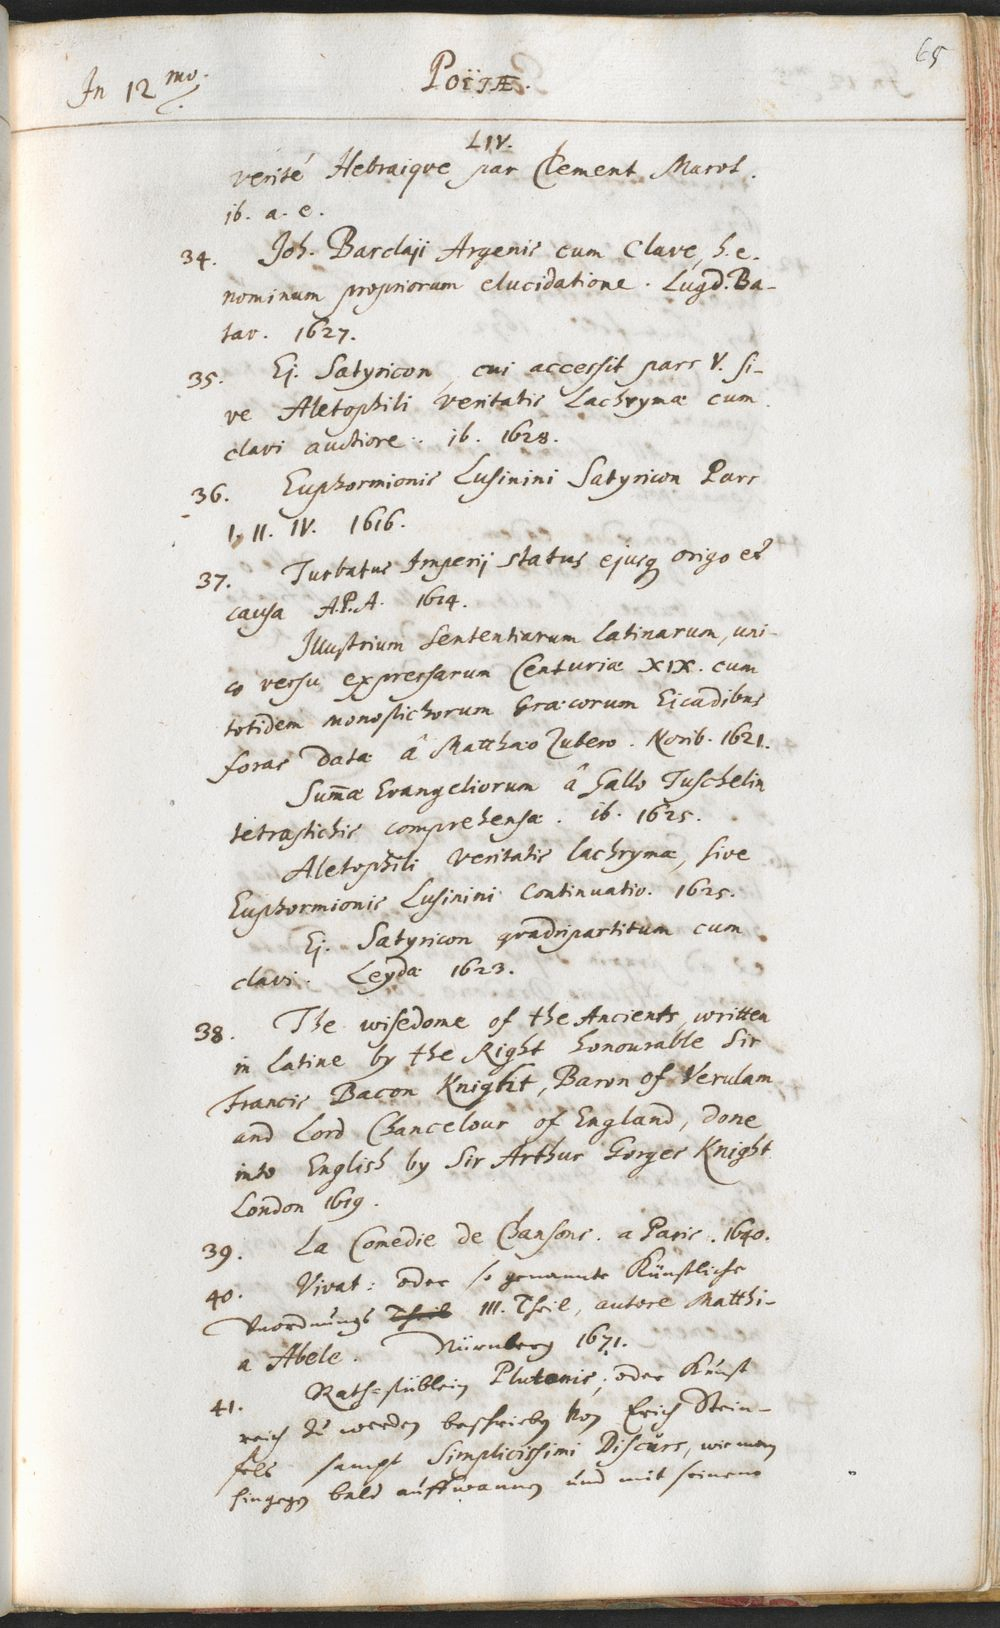 65
In 12 mo.
POËTÆ.
LIV.
verité Hebraique par Clement Marot.
ib. a. e.
34. Joh. Barclaji Argenis cum Clave, h. e.
nominum propriorum elucidatione. Lugd. Ba-
tav. 1627.
35. Ej. Satyricon, cui accessit pars V. si-
ve Aletophili Veritatis Lachrymæ cum
clavi auctiore. ib. 1628.
36. Euphormionis Lusinini Satyricon Pars
I, II. IV. 1616.
37. Turbatus Imperij status ejusq origo et
causa A.P.A. 1614.
Illustrium Sententiarum Latinarum, uni-
co versu expressarum Centuriæ XIX. cum
totidem monostichorum Græcorum Eicadibus
foras data â Matthæo Zubero. Norib. 1621.
Sum̄æ Evangeliorum â Gallo Tuschelin
tetrastichis comprehensæ. ib. 1625.
Aletophili Veritatis lachrymæ, sive
Euphormionis Lusinini Continuatio. 1625.
Ej. Satyricon quadripartitum cum
clavi. Leydæ 1623.
38. The wisedome of the Ancients, written
in Latine by the Right honourable Sir
Francis Bacon Knight, Baron of Verulam
and Lord Chancelour of England, done
into English by Sir Arthur Gorges Knight
London 1619.
39. La Comedie de Chansons. a Paris. 1640.
40. Vivat: oder so genannte Künstliche
Unordnung Theil III. Theil, autore Matthi-
a Abele. Nürnberg 1671.
41. Rath-stüblein Plutonis, oder Kunst
reich zu werden beschrieben von Erich Stein-
fels sampt Simplicissimi Discurs, wie man
hingegen bald auffwannen und mit seinem